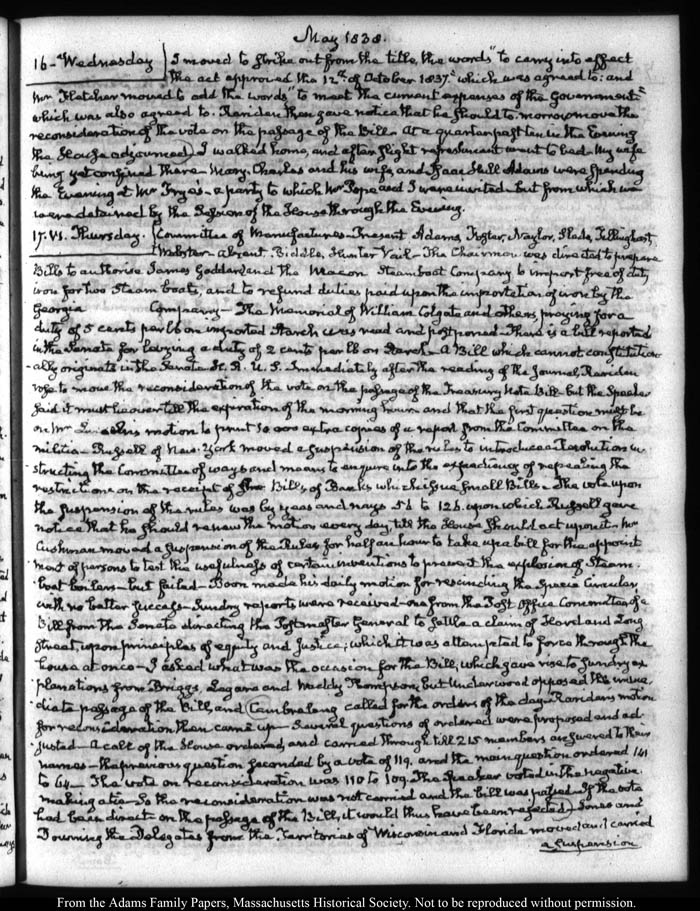 May 1838.
16. Wednesday I moved to strike out from the title, the words "to carry into effect
the act approved the 12th of October 1837" which was agreed to: and
Mr Fletcher moved to add the words "to meet the current expenses of the Government"
which was also agreed to. Rariden then gave notice that he should to-morrow move the
reconsideration of the vote on the passage of the Bill. At a quarter past ten in the Evening
the House adjourned. I walked home, and after slight refreshment went to bed. My wife
being yet confined there. Mary, Charles and his wife, and Isaac Hull Adams were spending
the Evening at Mr Frye's. a party to which Mr Pope and I were invited. but from which we
were detained by the Session of the House through the Evening.
17. VI. Thursday. Committee of Manufactures. Present Adams, Foster, Naylor, Slade, Tillinghast,
Webster. absent, Biddle, Hunter Vail. The Chairman was directed to prepare
Bills to authorise James Goddard and the Macon Steamboat Company to import free of duty
iron for two Steam boats, and to refund duties paid upon the importation of iron by the
Georgia Company. The Memorial of William Colgate and others praying for a
duty of 5 cents per lb on imported Starch was read and postponed. There is a bill reported
in the Senate for laying a duty of 2 cents per lb on Starch. A Bill which cannot constitution-
ally originate in the Senate. H. R. U. S. Immediately after the reading of the Journal, Rariden
rose to move the reconsideration of the vote on the passage of the Treasury Note Bill. but the Speaker
said it must lie over till the expiration of the morning hour. and that the first question must be
on Mr motion to print 30 000 extra copies of a report from the Committee on the
militia. Russell of New-York moved a suspension of the rules to introduce a Resolution in-
structing the Committee of ways and means to enquire into the expediency of repealing the
restriction on the receipt of Bills, of Banks which issue small Bills. The vote upon
the suspension of the rules was by yeas and nays 56 to 126. upon which Russell gave
notice that he should renew the motion every day, till the House should act upon it. Mr
Cushman moved a suspension of the Rules for half an hour to take up a bill for the appoint-
ment of persons to test the usefulness of certain inventions to prevent the explosion of Steam-
boat boilers. but failed. Boon made his daily motion for rescinding the Specie Circular
with no better success. Sundry reports were received. one from the Post Office Committee of a
Bill from the Senate directing the Postmaster General to settle a claim of and Long
Street, upon principles of equity and Justice; which it was attempted to force through the
house at once. I asked what was the occasion for the Bill, which gave rise to sundry ex-
planations from Briggs, Legare and Waddy Thompson; but Underwood opposed the imme-
diate passage of the Bill, and Cambreleng called for the orders of the day. Rariden's motion
for reconsideration then came up. Several questions of order were proposed and ad-
justed. A call of the House ordered, and carried through till 215 members answered to their
names. the previous question seconded by a vote of 119. and the main question ordered 141
to 64. The vote on reconsideration was 110 to 109. The Speaker voted in the negative.
making a tie. So the reconsideration was not carried and the bill was passed. If the vote
had been direct on the passage of the Bill, it would thus have been rejected. Jones and
Downing the Delegates from the Territories of Wisconsin and Florida moved and carried
a suspension
From the Adams Family Papers, Massachusetts Historical Society. Not to be reproduced without permission.